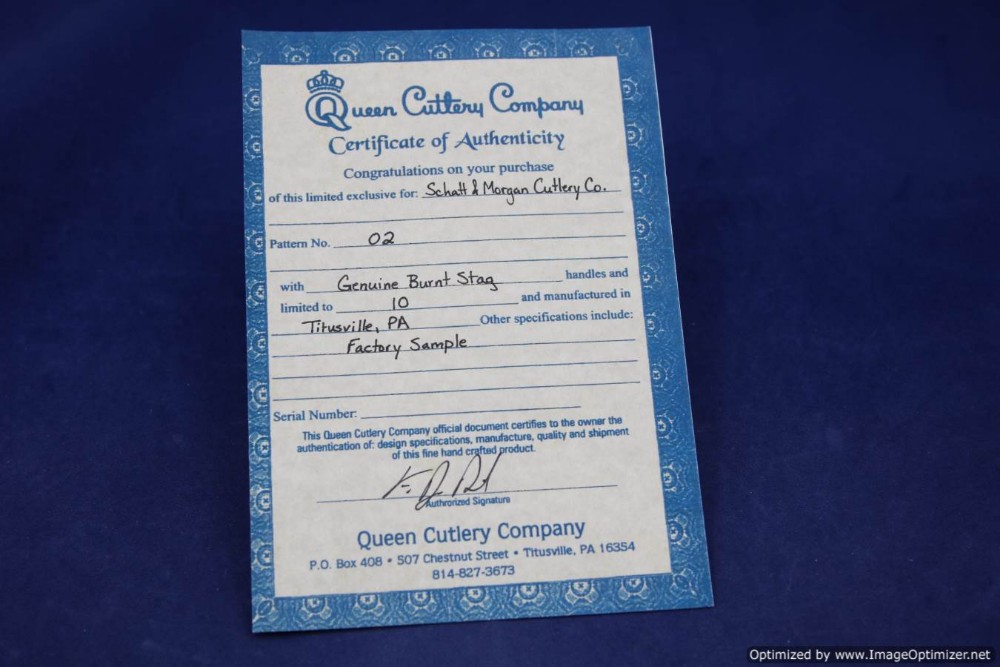 Queen Cuttlery Company
Certificate of Authenticity
Congratulations on your purchase
of this limited exclusive for: Schatt & Morgan Cutlery Co.
Pattern No. 02
with Genuine Burnt Stag handles and
limited to 10 and manufactured in
Titusville, PA Other specifications include:
Factory Sample
Serial Number:
This Queen Cutlery Company official document certifies to the owner the
authentication of: design specifications, manufacture, quality and shipment
of this fine hand crafted product.
Authrorized Signature
Queen Cutlery Company
P.O. Box 408 • 507 Chestnut Street • Titusville, PA 16354
814-827-3673
Optimized by www.ImageOptimizer.net